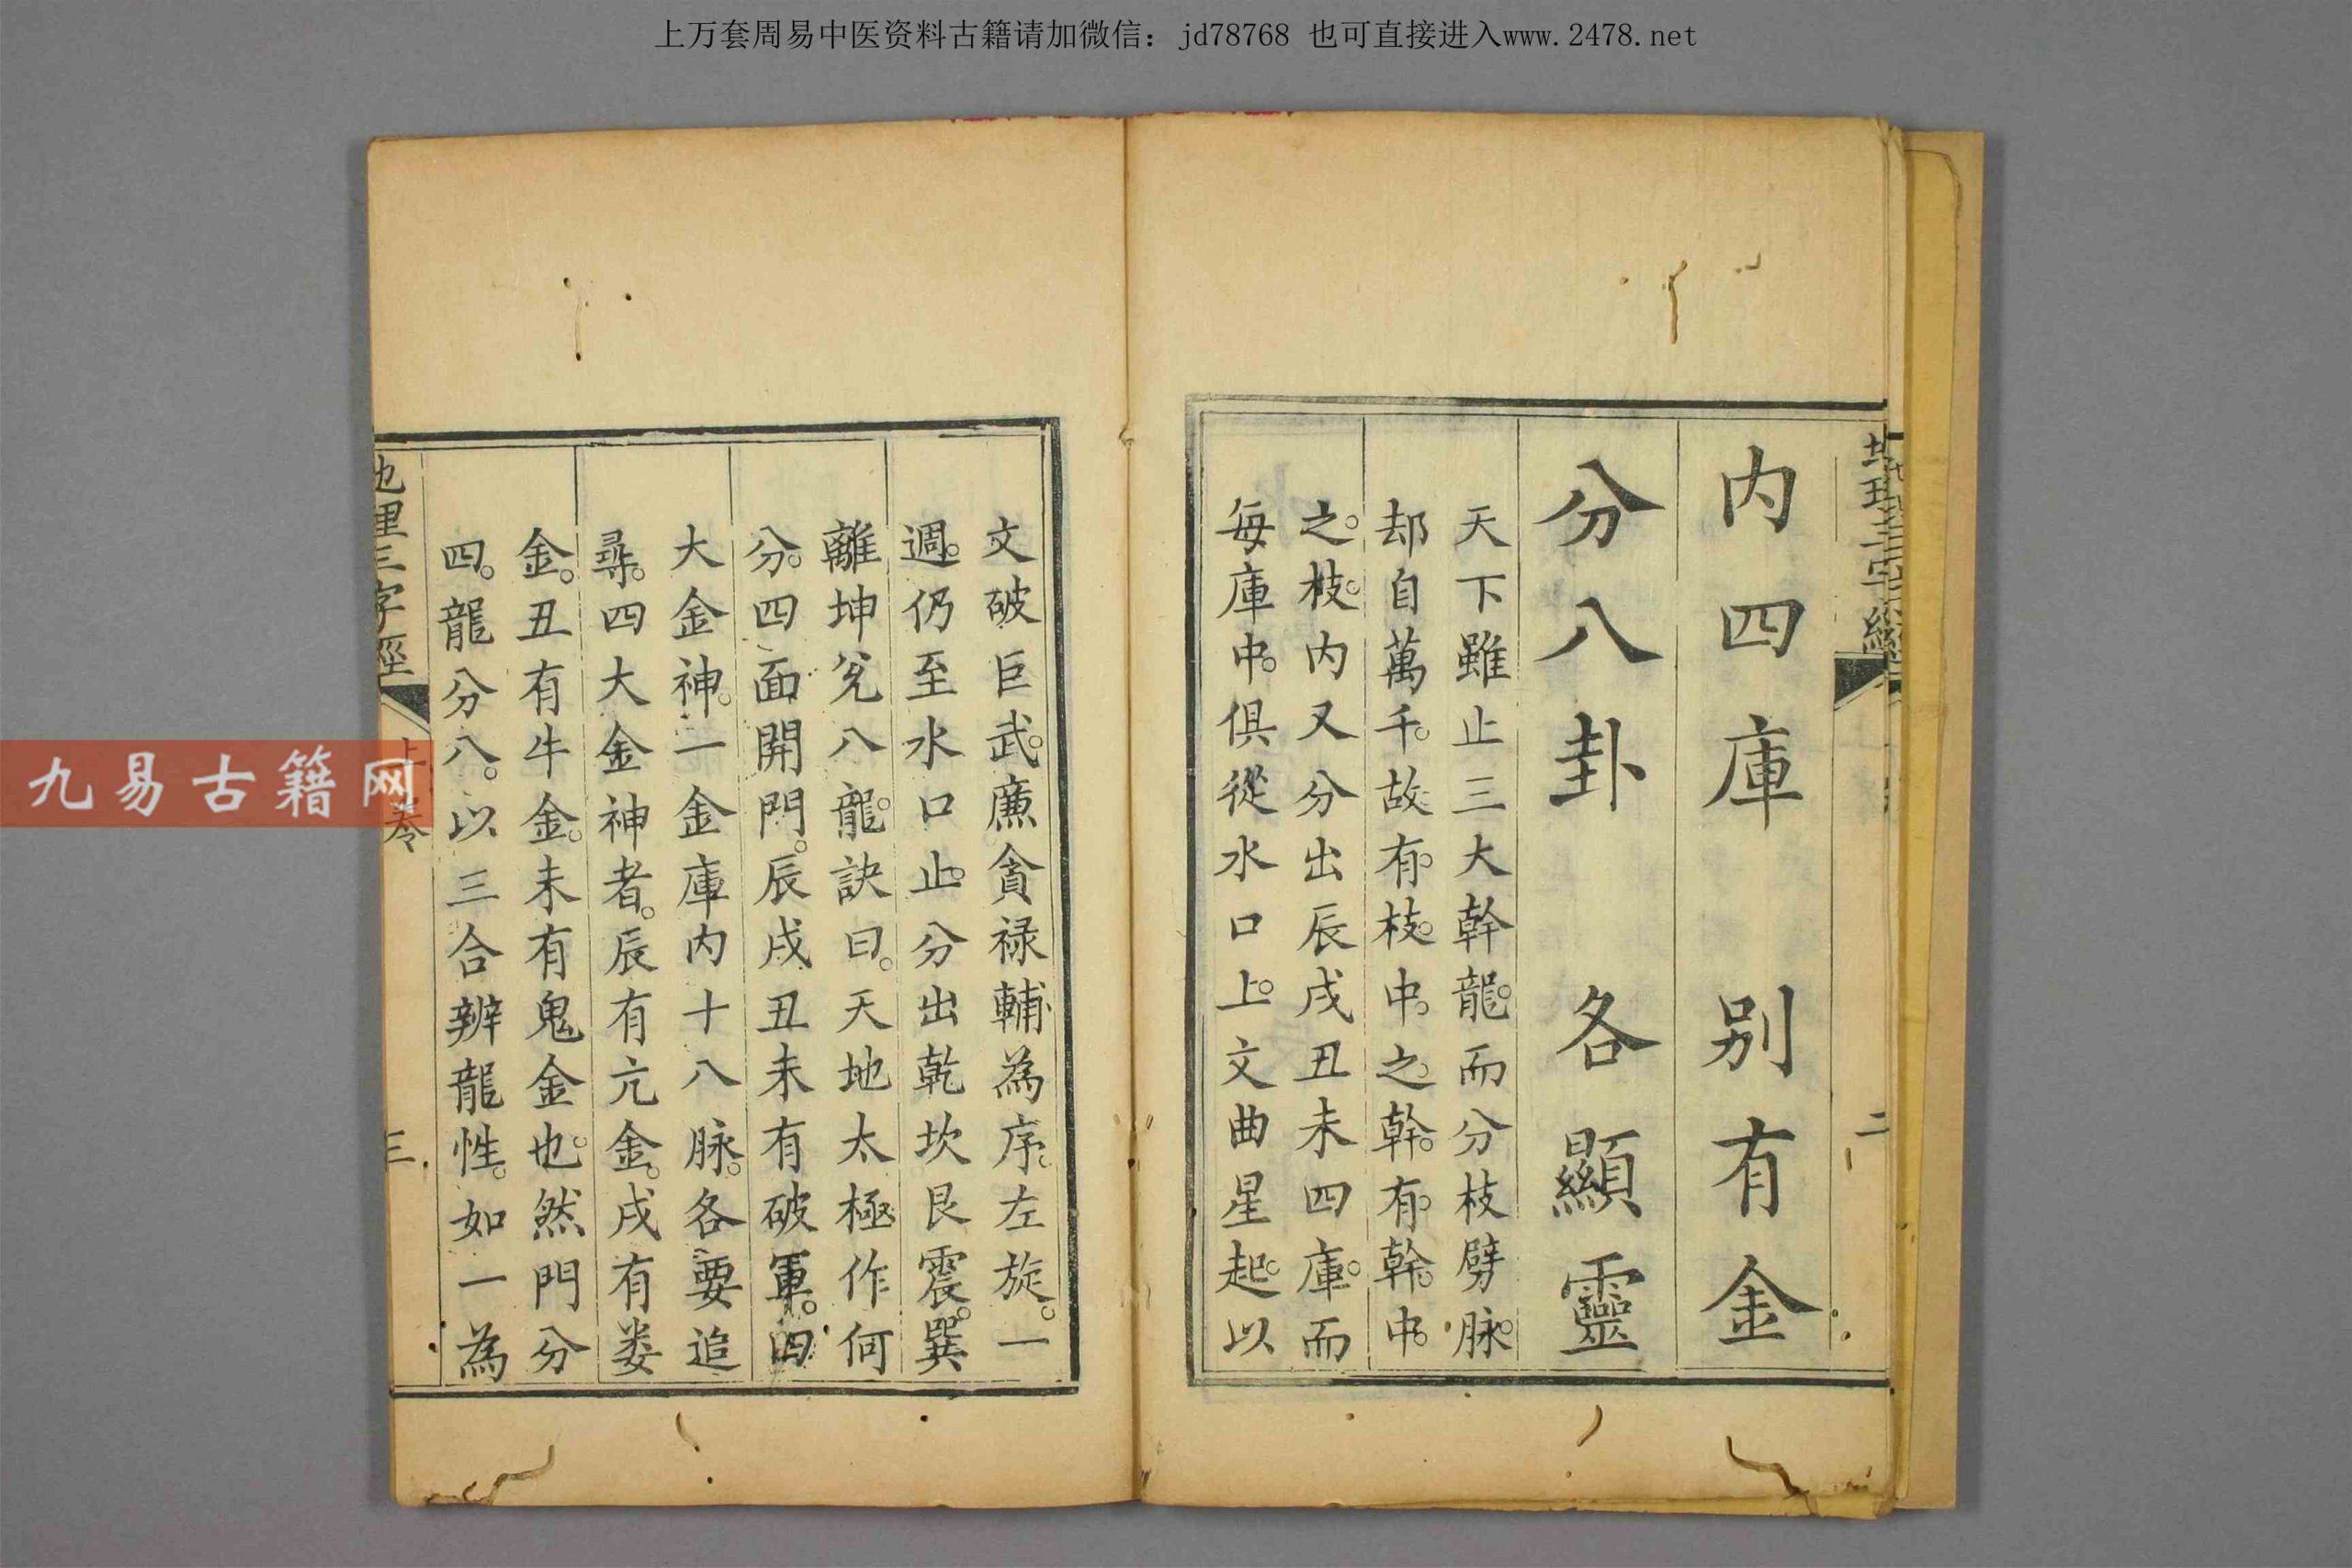 上万套周易中医资料古籍请加微信：jd78768 也可直接进入www.2478.net
地理三字經
二
内四庫 别有金
分八卦 各顯靈
天下雖止三大幹龍。而分枝劈脉。
却自萬千。故有枝中之幹。有幹中
之枝。内又分出辰戌丑未四庫。而
每庫中。俱從水口上。文曲星起。以
文破巨武。廉貪禄輔為序。左旋。一
週。仍至水口止。分出乾坎艮震。巽
離坤兌八龍。訣曰。天地太極作何
分。四面開門。辰戌丑未有破軍。四
大金神。一金庫内十八脉。各要追
尋。四大金神者。辰有亢金。戌有婁
金。丑有牛金。未有鬼金也。然門分
四。龍分八。以三合辨龍性。如一為
地理三字經
上卷
三
九易古籍网